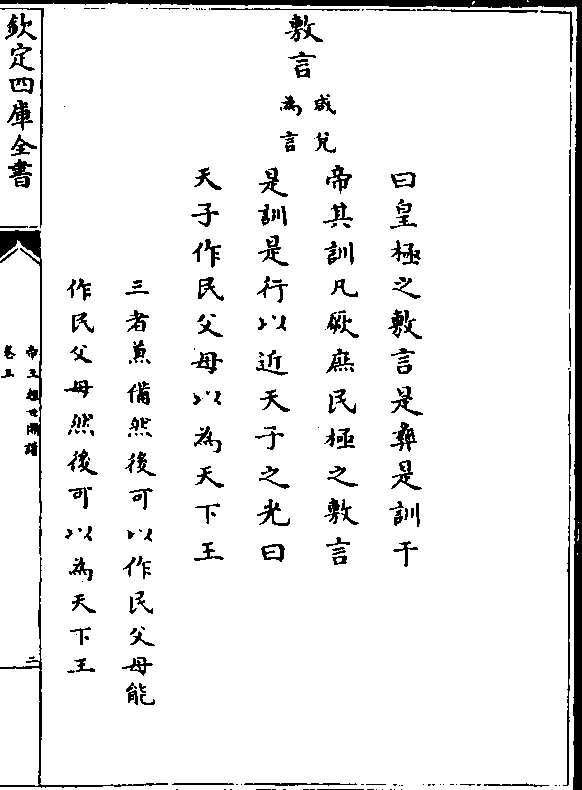 敷言
咸兌
為言
曰皇極之敷言是彝是訓于
帝其訓凡厥庶民極之敷言
是訓是行以近天子之光曰
天子作民父母以為天下王
三者兼備然後可以作民父母能
作民父母然後可以為天下王
欽定四庫全書
帝王經世圖譜
卷五
二